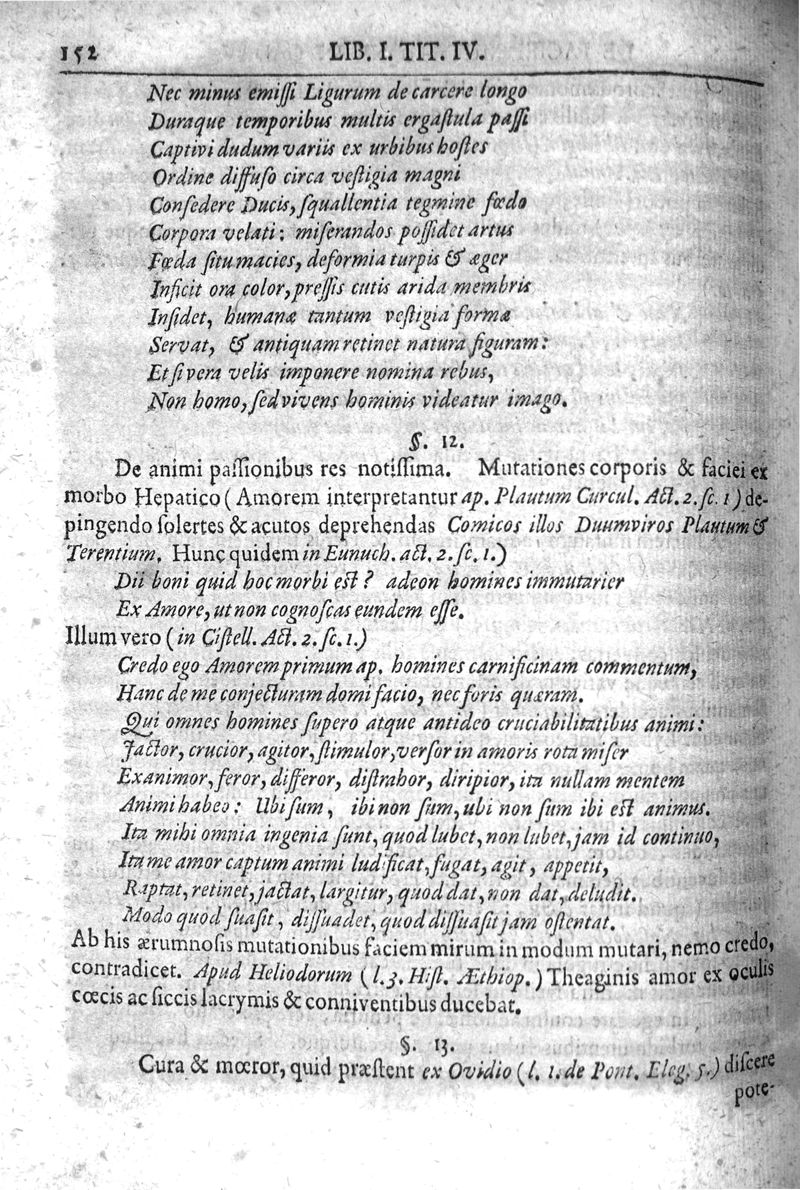 152 LIB. I. TIT. IV.
Nec minus emiſſi Ligurum de carcere longo
Duraque temporibus multis ergaſtula paſſi
Captivi dudum variis ex urbibus hoſtes
Ordine diffuſo circa veſtigia magni
Conſedere Ducis, ſquallentia tegmine fœdo
Corpora velati: miſerandos poſſidet artus
Fœda ſitu macies, deformia turpis & æger
Inficit ora color, preſſis cutis arida membris
Inſidet, humanæ tantum veſtigia formæ
Servat, & antiquam retinet natura figuram:
Et ſi vera velis imponere nomina rebus,
Non homo, ſed vivens hominis videatur imago.
§. 12.
De animi paſſionibus res notiſſima. Mutationes corporis & faciei ex
morbo Hepatico (Amorem interpretantur ap. Plautum Curcul. Act. 2. ſc. 1) de-
pingendo ſolertes & acutos deprehendas Comicos illos Duumviros Plautum &
Terentium. Hunc quidem in Eunuch. act. 2. ſc. 1.)
Dii boni quid hoc morbi est? adeon homines immutarier
Ex Amore, ut non cognoſcas eundem eſſe.
Illum vero (in Ciſtell. Act. 2. ſc. 1.)
Credo ego Amorem primum ap. homines carnificinam commentum,
Hanc de me conjecturam domi facio, nec foris quæram.
Qui omnes homines ſupero atque antideo cruciabilitatibus animi:
Jactor, crucior, agitor, ſtimulor, verſor in amoris rota miſer
Exanimor, feror, differor, diſtrahor, diripior, ita nullam mentem
Animi habeo: Ubi ſum, ibi non ſum, ubi non ſum ibi est animus.
Ita mihi omnia ingenia ſunt, quod lubet, non lubet, jam id continuo,
Ita me amor captum animi ludificat, fugat, agit, appetit,
Raptat, retinet, jactat, largitur, quod dat, non dat, deludit.
Modo quod ſuaſit, diſſuadet, quod diſſuaſit jam oſtentat.
Ab his ærumnoſis mutationibus faciem mirum in modum mutari, nemo credo,
contradicet. Apud Heliodorum (l. 3. Hiſt. Æthiop.) Theaginis amor ex oculis
cœcis ac ſiccis lacrymis & conniventibus ducebat.
§. 13.
Cura & mœror, quid præſtent ex Ovidio (l. 1. de Pont. Eleg. 5.) diſcere
pote-